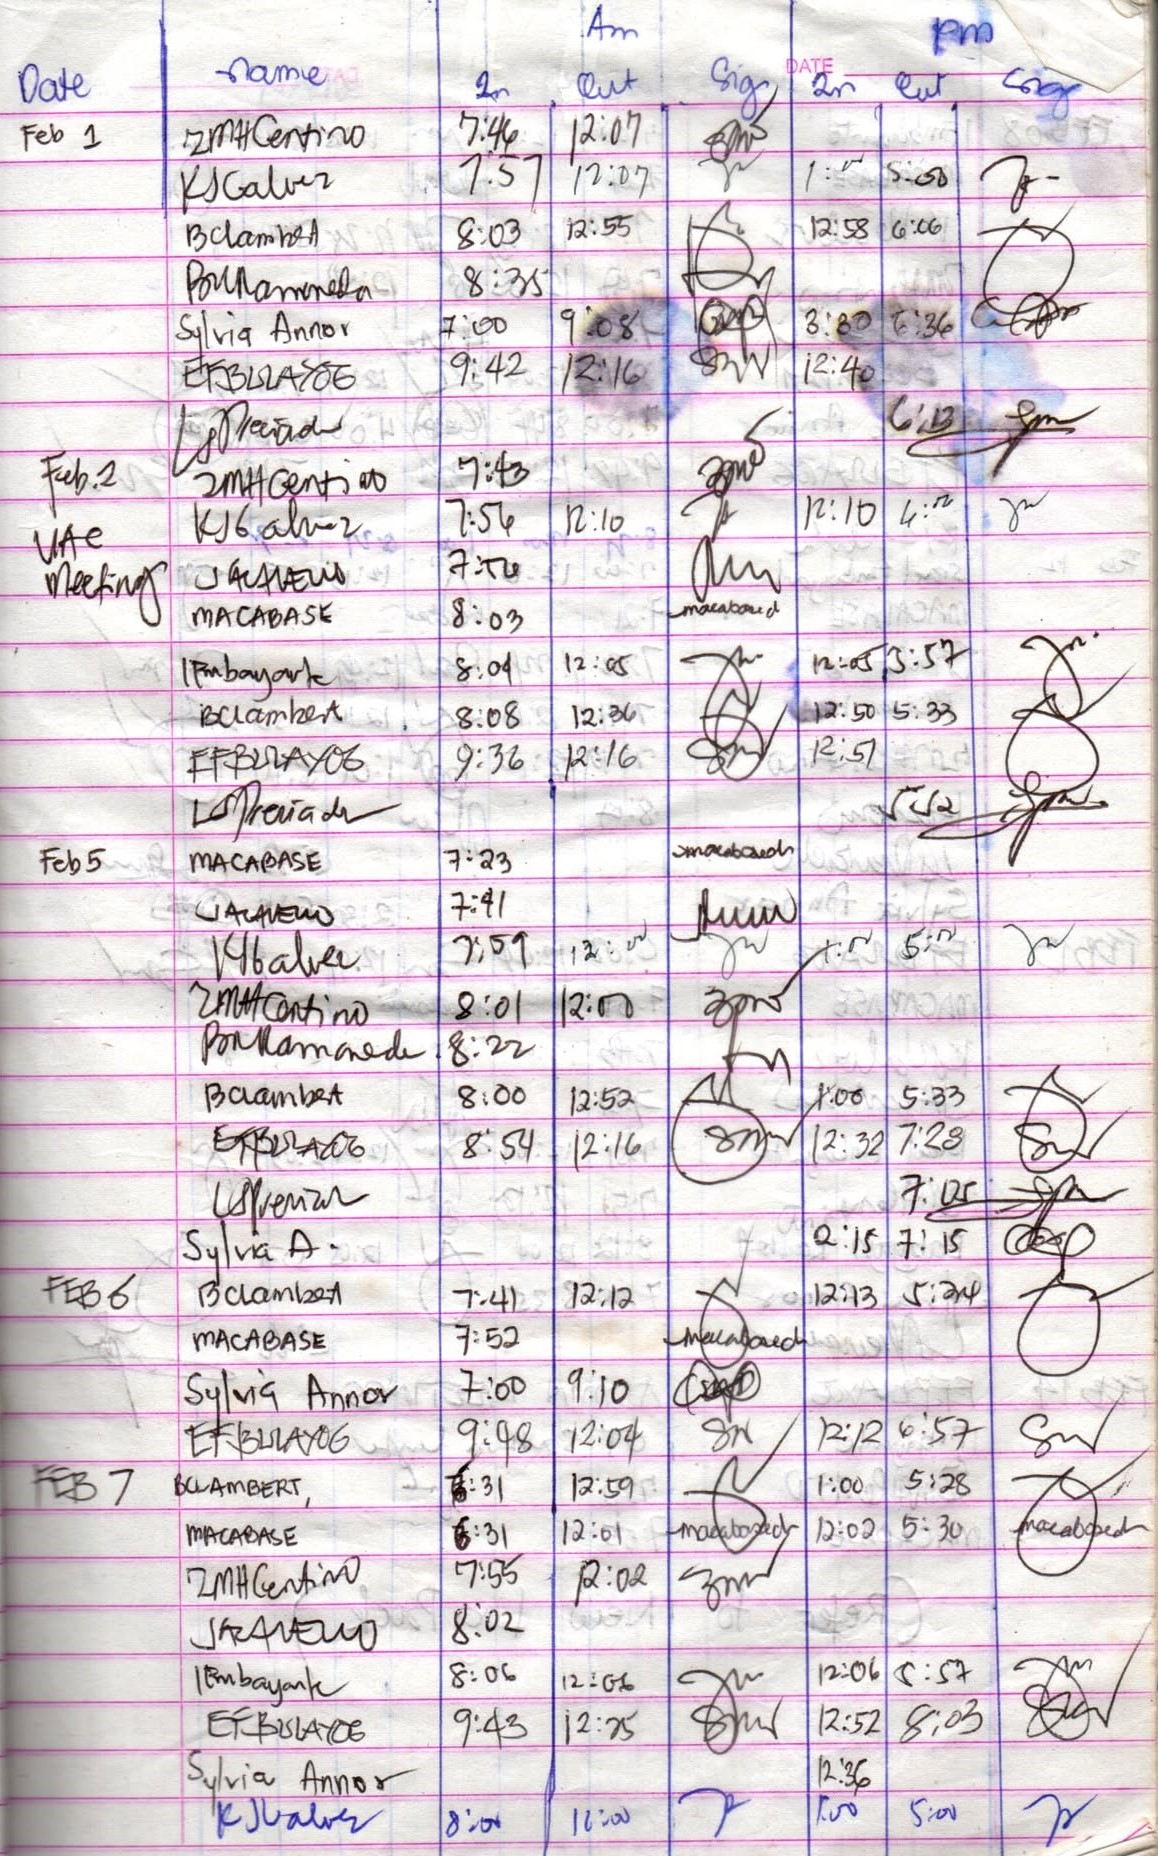 Am pm
Date Name In Out Sig DATE In Out Sig
Feb 1 ZMHCentino 7:46 12:07
KJGalvez 7:57 12:07 1:00 5:00
BClambert 8:03 12:55 12:58 6:06
8:35
Sylvia Annor 7:00 9:08 3:30 6:36
EFBULAYOG 9:42 12:16 12:40
6:13
Feb.2 ZMHCentino 7:43
UAC KJGalvez 7:56 12:10 12:10 4:00
Meeting 7:56
MACABASE 8:03 macabased
IEmbayarte 8:04 12:05 12:05 3:57
BClambert 8:08 12:36 12:50 5:33
EFBULAYOG 9:36 12:16 12:51
LSPreciado 5:52
Feb 5 MACABASE 7:23 macabased
7:41
KJGalvez 7:59 12:00 1:00 5:00
ZMHCentino 8:01 12:00
8:22
BClambert 8:00 12:52 1:00 5:33
EFBULAYOG 8:54 12:16 12:32 7:23
7:05
Sylvia A. 2:15 7:15
FEB 6 BClambert 7:41 12:12 12:13 5:24
MACABASE 7:52 macabased
Sylvia Annor 7:00 9:10
EFBULAYOG 9:48 12:04 12:12 6:57
FEB 7 BCLAMBERT, 6:31 12:59 1:00 5:28
MACABASE 6:31 12:01 macabased 12:02 5:30 macabased
ZMHCentino 7:55 12:02
8:02
IEmbayarte 8:06 12:06 12:06 5:57
EFBULAYOG 9:43 12:25 12:52 8:03
Sylvia Annor 12:36
KJGalvez 8:00 12:00 1:00 5:00